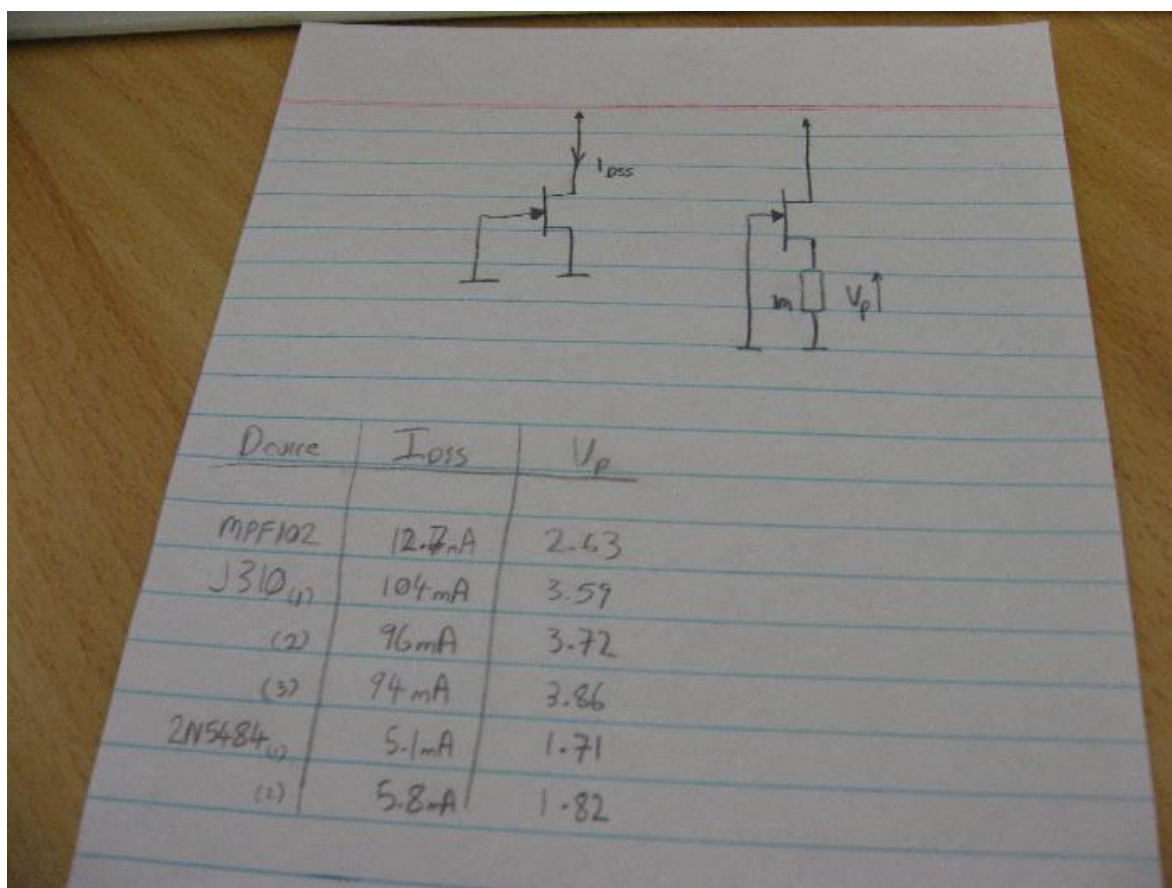 IDSS
1m Vp
Device IDSS Vp
MPF102 12.7mA 2.63
J310(1) 104mA 3.59
(2) 96mA 3.72
(3) 94mA 3.86
2N5484(1) 5.1mA 1.71
(2) 5.8mA 1.82